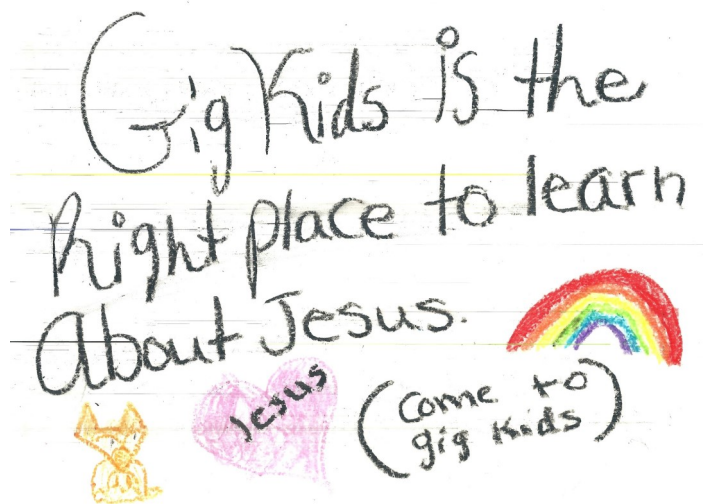 Gig Kids is the
Right place to learn
About Jesus.
Jesus
(Come to
gig kids)